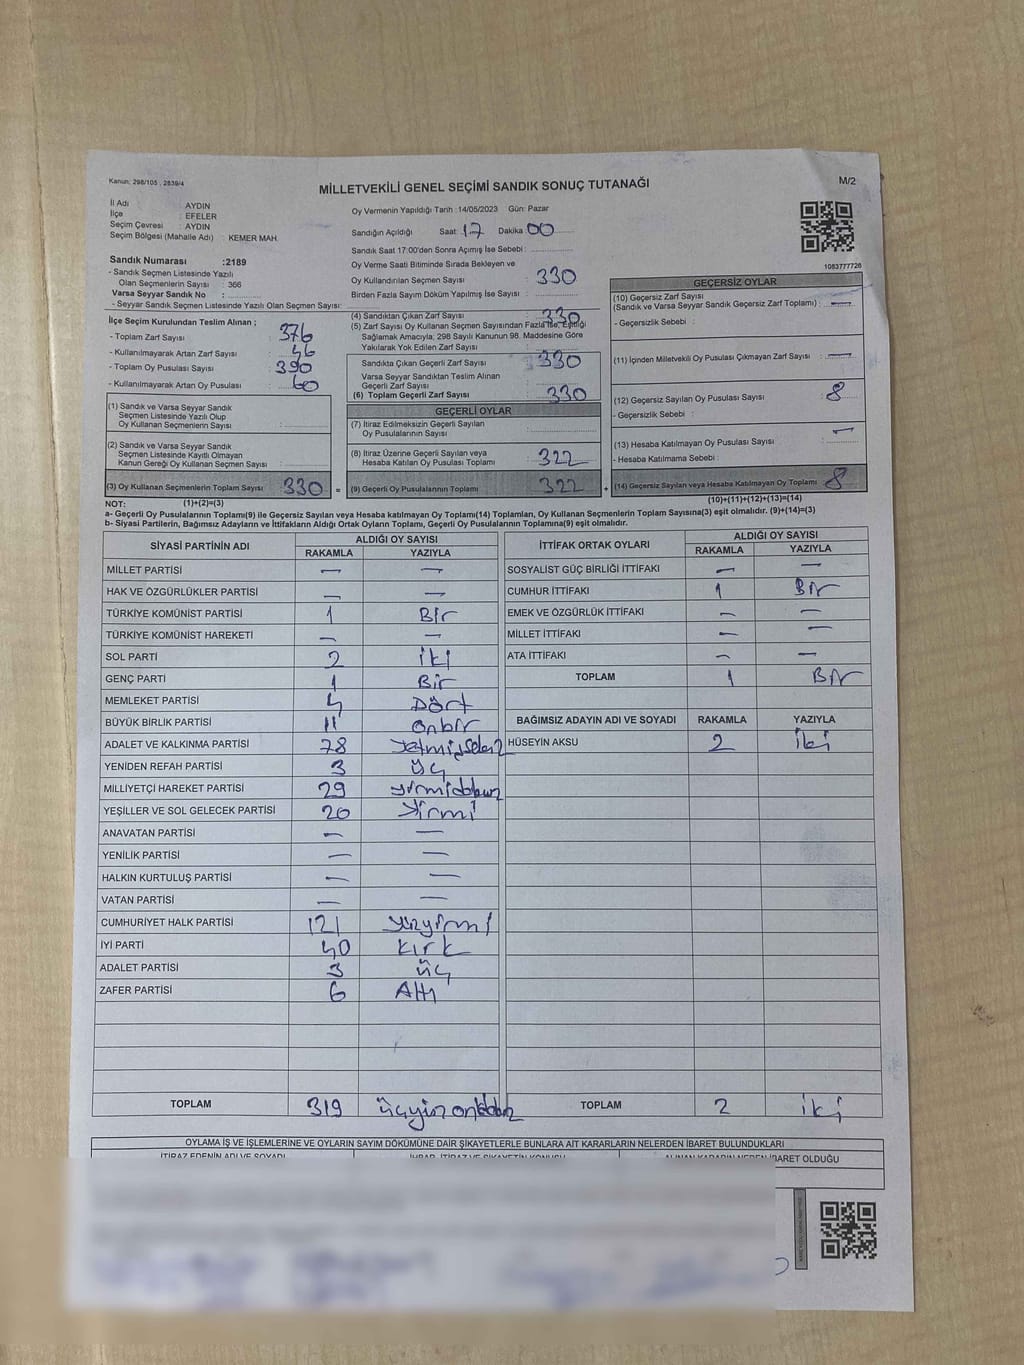 Kanun: 298/105 , 2839/4
MİLLETVEKİLİ GENEL SEÇİMİ SANDIK SONUÇ TUTANAĞI
M/2
İl Adı : AYDIN
İlçe : EFELER
Seçim Çevresi : AYDIN
Seçim Bölgesi (Mahalle Adı) : KEMER MAH.
Sandık Numarası :2189
- Sandık Seçmen Listesinde Yazılı
Olan Seçmenlerin Sayısı : 366
Varsa Seyyar Sandık No :
- Seyyar Sandık Seçmen Listesinde Yazılı Olan Seçmen Sayısı:
Oy Vermenin Yapıldığı Tarih :14/05/2023 Gün: Pazar
Sandığın Açıldığı Saat: 17 Dakika 00
Sandık Saat 17:00'den Sonra Açımış İse Sebebi :
Oy Verme Saati Bitiminde Sırada Bekleyen ve
Oy Kullandırılan Seçmen Sayısı : 330
Birden Fazla Sayım Döküm Yapılmış İse Sayısı :
1083777726
İlçe Seçim Kurulundan Teslim Alınan ;
- Toplam Zarf Sayısı : 376
- Kullanılmayarak Artan Zarf Sayısı : 46
- Toplam Oy Pusulası Sayısı : 390
- Kullanılmayarak Artan Oy Pusulası : 60
(1) Sandık ve Varsa Seyyar Sandık
Seçmen Listesinde Yazılı Olup
Oy Kullanan Seçmenlerin Sayısı :
(2) Sandık ve Varsa Seyyar Sandık
Seçmen Listesinde Kayıtlı Olmayan
Kanun Gereği Oy Kullanan Seçmen Sayısı :
(3) Oy Kullanan Seçmenlerin Toplam Sayısı 330 =
(1)+(2)=(3)
(4) Sandıktan Çıkan Zarf Sayısı : 330
(5) Zarf Sayısı Oy Kullanan Seçmen Sayısından Fazla İse, Eşitliği
Sağlamak Amacıyla, 298 Sayılı Kanunun 98. Maddesine Göre
Yakılarak Yok Edilen Zarf Sayısı :
Sandıkta Çıkan Geçerli Zarf Sayısı : 330
Varsa Seyyar Sandıktan Teslim Alınan
Geçerli Zarf Sayısı :
(6) Toplam Geçerli Zarf Sayısı : 330
GEÇERLİ OYLAR
(7) İtiraz Edilmeksizin Geçerli Sayılan
Oy Pusulalarının Sayısı :
(8) İtiraz Üzerine Geçerli Sayılan veya
Hesaba Katılan Oy Pusulası Toplamı : 322
(9) Geçerli Oy Pusulalarının Toplamı 322 +
GEÇERSİZ OYLAR
(10) Geçersiz Zarf Sayısı
(Sandık ve Varsa Seyyar Sandık Geçersiz Zarf Toplamı) : —
- Geçersizlik Sebebi :
(11) İçinden Milletvekili Oy Pusulası Çıkmayan Zarf Sayısı : —
(12) Geçersiz Sayılan Oy Pusulası Sayısı : 8
- Geçersizlik Sebebi :
(13) Hesaba Katılmayan Oy Pusulası Sayısı : —
- Hesaba Katılmama Sebebi :
(14) Geçersiz Sayılan veya Hesaba Katılmayan Oy Pusulası Toplamı 8
(10)+(11)+(12)+(13)=(14)
NOT:
a- Geçerli Oy Pusulalarının Toplamı(9) ile Geçersiz Sayılan veya Hesaba katılmayan Oy Toplamı(14) Toplamları, Oy Kullanan Seçmenlerin Toplam Sayısına(3) eşit olmalıdır. (9)+(14)=(3)
b- Siyasi Partilerin, Bağımsız Adayların ve İttifakların Aldığı Ortak Oyların Toplamı, Geçerli Oy Pusulalarının Toplamına(9) eşit olmalıdır.
SİYASİ PARTİNİN ADI ALDIĞI OY SAYISI
RAKAMLA YAZIYLA
MİLLET PARTİSİ — —
HAK VE ÖZGÜRLÜKLER PARTİSİ — —
TÜRKİYE KOMÜNİST PARTİSİ 1 Bir
TÜRKİYE KOMÜNİST HAREKETİ — —
SOL PARTİ 2 iki
GENÇ PARTİ 1 Bir
MEMLEKET PARTİSİ 4 Dört
BÜYÜK BİRLİK PARTİSİ 11 onbir
ADALET VE KALKINMA PARTİSİ 78
YENİDEN REFAH PARTİSİ 3 üç
MİLLİYETÇİ HAREKET PARTİSİ 29
YEŞİLLER VE SOL GELECEK PARTİSİ 20 Yirmi
ANAVATAN PARTİSİ — —
YENİLİK PARTİSİ — —
HALKIN KURTULUŞ PARTİSİ — —
VATAN PARTİSİ — —
CUMHURİYET HALK PARTİSİ 121 yüzyirmi
İYİ PARTİ 40 Kırk
ADALET PARTİSİ 3 üç
ZAFER PARTİSİ 6 Altı
TOPLAM 319
İTTİFAK ORTAK OYLARI ALDIĞI OY SAYISI
RAKAMLA YAZIYLA
SOSYALİST GÜÇ BİRLİĞİ İTTİFAKI — —
CUMHUR İTTİFAKI 1 Bir
EMEK VE ÖZGÜRLÜK İTTİFAKI — —
MİLLET İTTİFAKI — —
ATA İTTİFAKI — —
TOPLAM 1 Bir
BAĞIMSIZ ADAYIN ADI VE SOYADI RAKAMLA YAZIYLA
HÜSEYİN AKSU 2 iki
TOPLAM 2 iki
OYLAMA İŞ VE İŞLEMLERİNE VE OYLARIN SAYIM DÖKÜMÜNE DAİR ŞİKAYETLERLE BUNLARA AİT KARARLARIN NELERDEN İBARET BULUNDUKLARI
İTİRAZ EDENİN ADI VE SOYADI İHBAR, İTİRAZ VE ŞİKAYETİN KONUSU ALINAN KARARIN NEDEN İBARET OLDUĞU